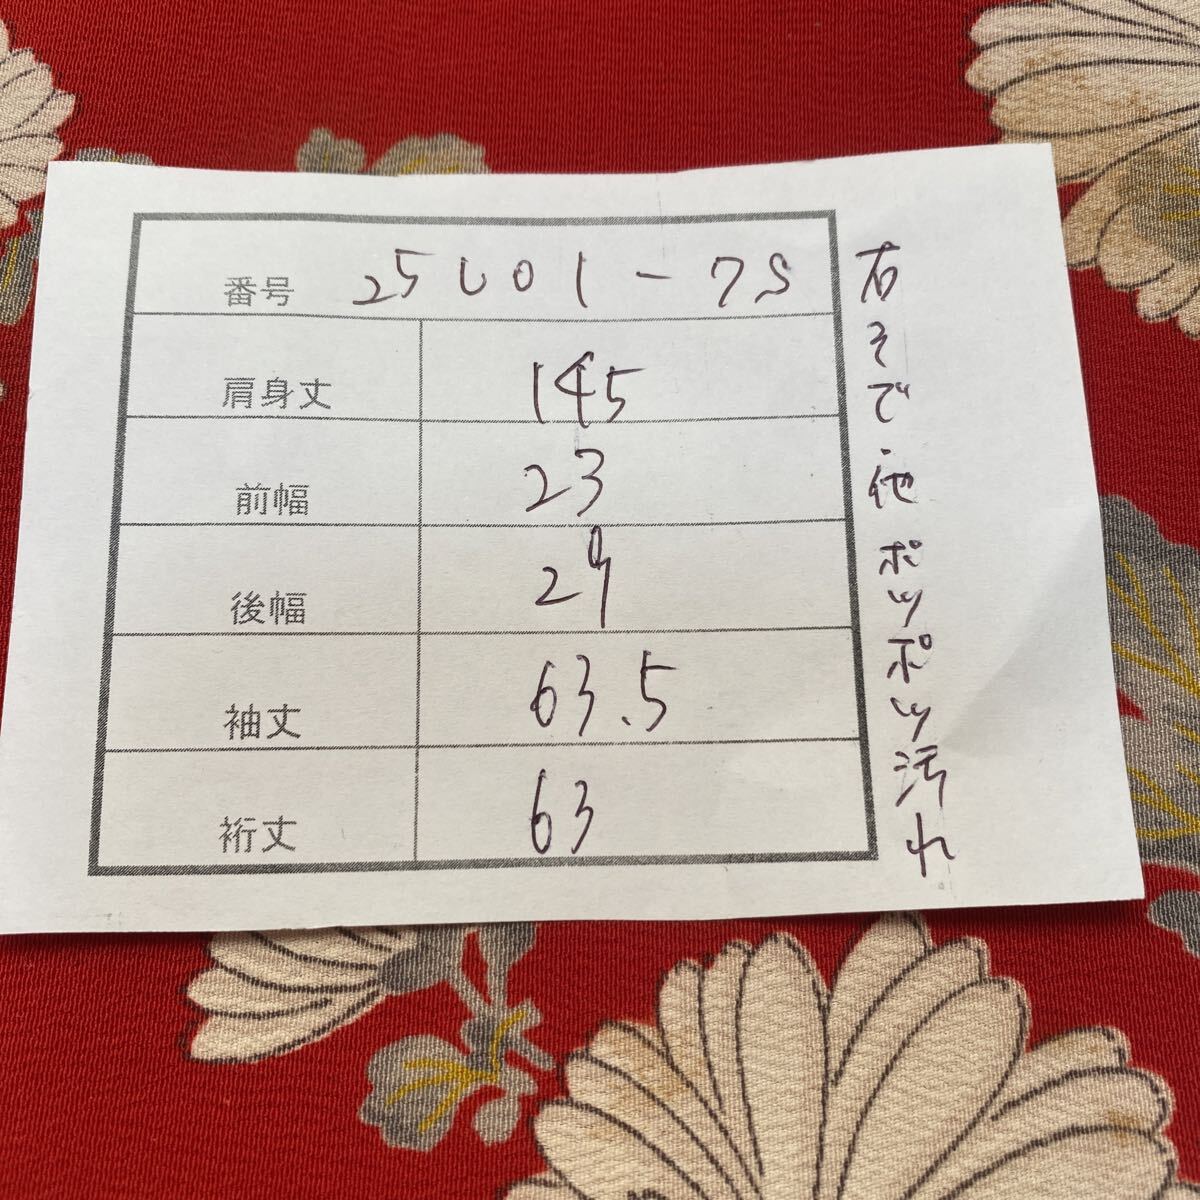 番号 25U01-7S
肩身丈 145
前幅 23
後幅 29
袖丈 63.5
裄丈 63
右そで・他ポツポツ汚れ